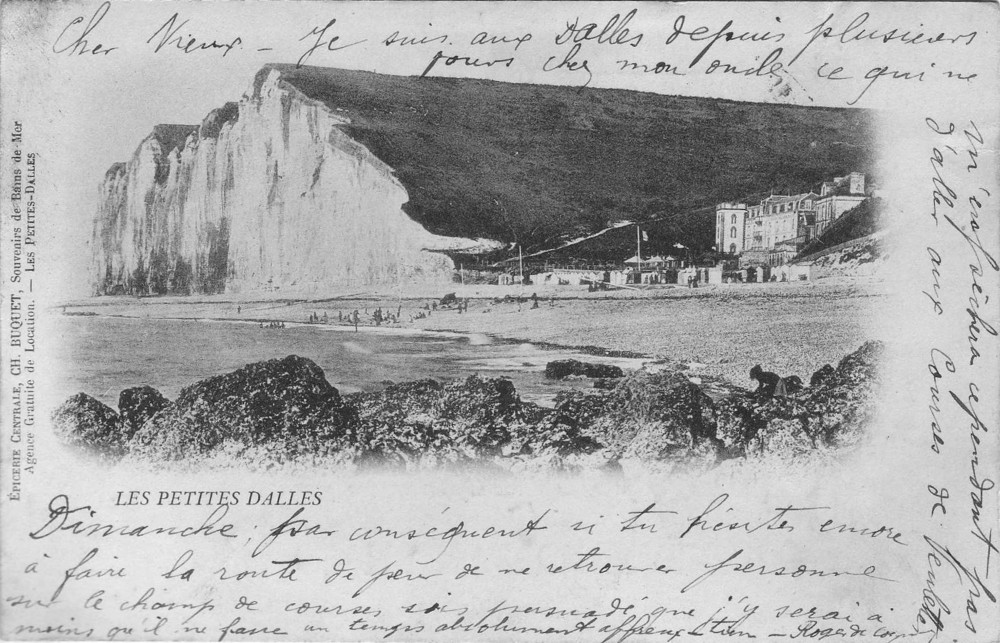 Cher Vieux – Je suis aux Dalles depuis plusieurs
jours chez mon oncle ce qui ne
m'empêchera cependant pas
d'aller aux Courses de Veulettes,
Dimanche, par conséquent si tu hésites encore
à faire la route de peur de ne retrouver personne
sur le champ de courses sois persuadé que j'y serai à
moins qu'il ne fasse un temps absolument affreux – tien – Roger
LES PETITES DALLES
ÉPICERIE CENTRALE, CH. BUQUET, Souvenirs de Bains de Mer
Agence Gratuite de Location. – LES PETITES-DALLES